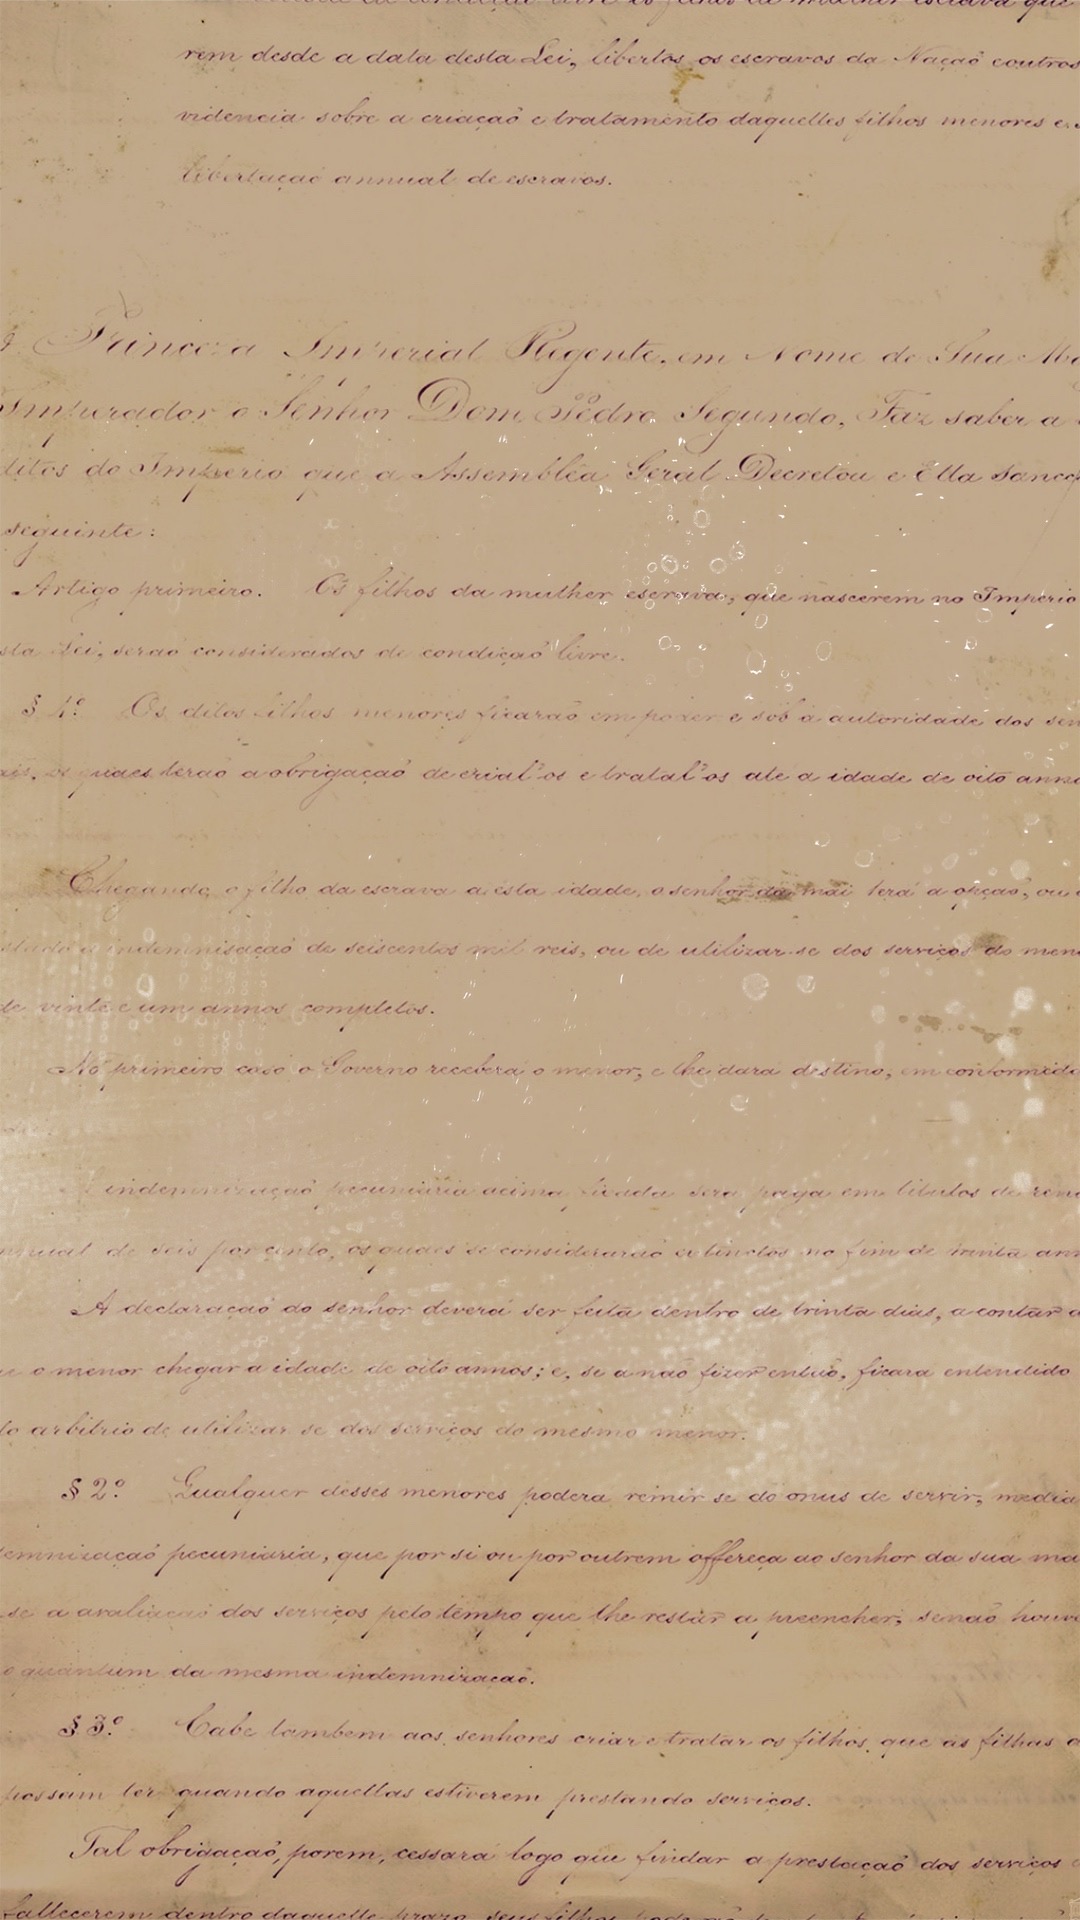 de condição livre os filhos da mulher escrava que
rem desde a data desta Lei, libertos os escravos da Nação e outros
videncia sobre a criação e tratamento daquelles filhos menores e
libertação annual de escravos.
Princeza Imperial Regente, em Nome de Sua Ma
Imperador o Senhor Dom Pedro Segundo, Faz saber a
ditos do Imperio que a Assembléa Geral Decretou e Ella Sancc
seguinte:
Artigo primeiro. Os filhos da mulher escrava, que nascerem no Imperio
sta Lei, serão considerados de condição livre.
§ 1º Os ditos filhos menores ficarão em poder e sob a autoridade dos sen
ais, os quaes terão a obrigação de crial-os e tratal-os até a idade de oito anno
Chegando o filho da escrava a esta idade, o senhor da mãi terá a opção, ou
stado a indemnisação de seiscentos mil reis, ou de utilizar-se dos serviços do men
de vinte e um annos completos.
No primeiro caso o Governo receberá o menor, e lhe dará destino, em conformida
indemnização pecuniária acima fixada será paga em titulos de ren
nnual de seis por cento, os quaes se considerarão extinctos no fim de trinta ann
A declaração do senhor deverá ser feita dentro de trinta dias, a contar d
ue o menor chegar a idade de oito annos; e, se a não fizer então, ficará entendido
lo arbitrio de utilizar-se dos serviços do mesmo menor.
§ 2º Qualquer desses menores poderá remir-se do onus de servir, media
demnização pecuniaria, que por si ou por outrem offereça ao senhor da sua mã
-se a avaliação dos serviços pelo tempo que lhe restar a preencher, se não houve
o quantum da mesma indemnização.
§ 3º Cabe tambem aos senhores criar e tratar os filhos que as filhas d
possam ter quando aquellas estiverem prestando serviços.
Tal obrigação, porem, cessará logo que findar a prestação dos serviços
fallecerem dentro daquelle prazo, seus filhos